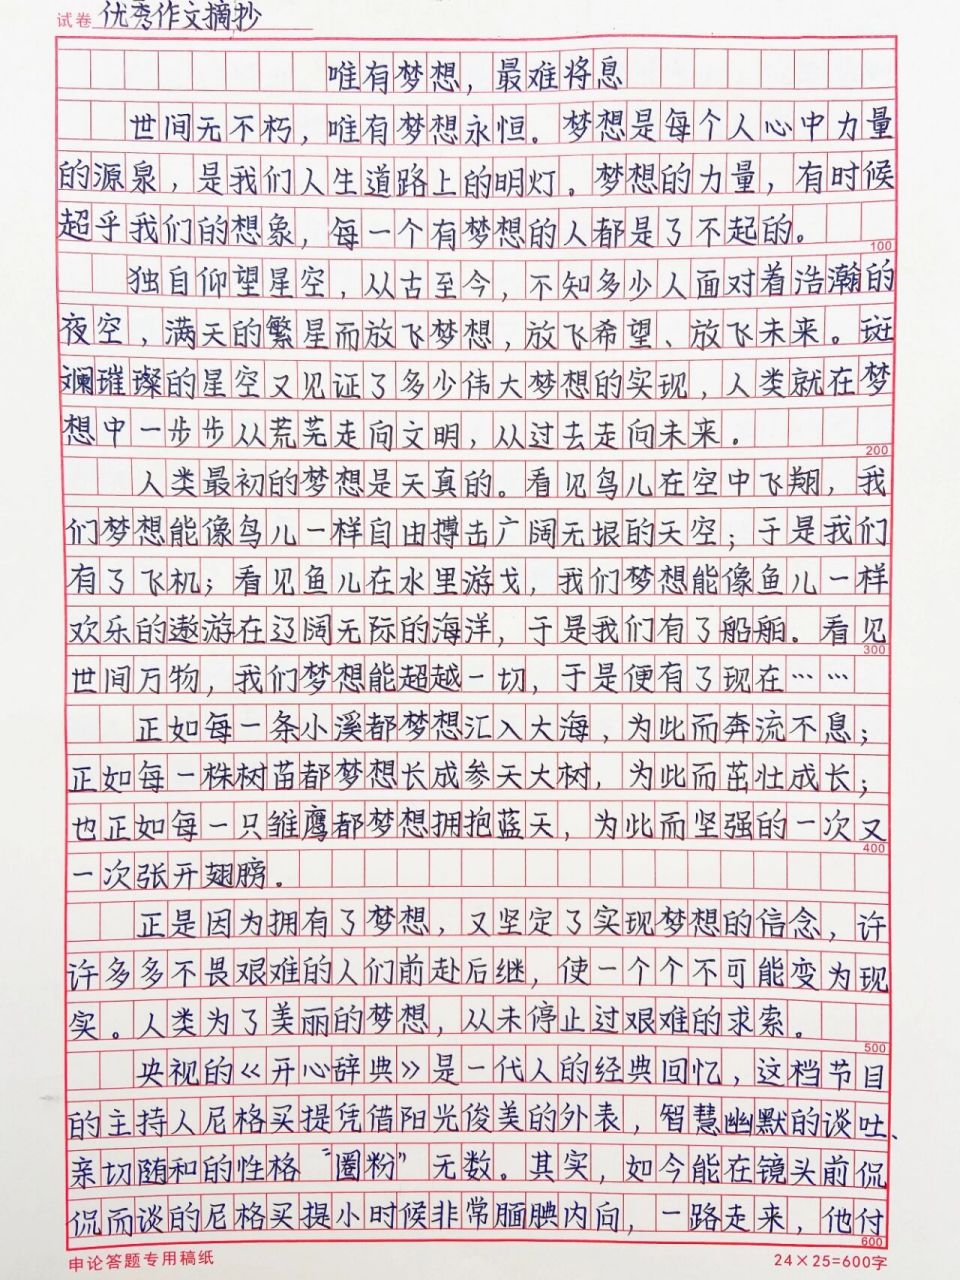 试卷 优秀作文摘抄
唯有梦想，最难将息
世间无不朽，唯有梦想永恒。梦想是每个人心中力量
的源泉，是我们人生道路上的明灯。梦想的力量，有时候
超乎我们的想象，每一个有梦想的人都是了不起的。
100
独自仰望星空，从古至今，不知多少人面对着浩瀚的
夜空，满天的繁星而放飞梦想，放飞希望、放飞未来。斑
斓璀璨的星空又见证了多少伟大梦想的实现，人类就在梦
想中一步步从荒芜走向文明，从过去走向未来。
200
人类最初的梦想是天真的。看见鸟儿在空中飞翔，我
们梦想能像鸟儿一样自由搏击广阔无垠的天空；于是我们
有了飞机；看见鱼儿在水里游弋，我们梦想能像鱼儿一样
欢乐的遨游在辽阔无际的海洋，于是我们有了船舶。看见
300
世间万物，我们梦想能超越一切，于是便有了现在……
正如每一条小溪都梦想汇入大海，为此而奔流不息；
正如每一株树苗都梦想长成参天大树，为此而茁壮成长；
也正如每一只雏鹰都梦想拥抱蓝天，为此而坚强的一次又
400
一次张开翅膀。
正是因为拥有了梦想，又坚定了实现梦想的信念，许
许多多不畏艰难的人们前赴后继，使一个个不可能变为现
实。人类为了美丽的梦想，从未停止过艰难的求索。
500
央视的《开心辞典》是一代人的经典回忆，这档节目
的主持人尼格买提凭借阳光俊美的外表，智慧幽默的谈吐、
亲切随和的性格“圈粉”无数。其实，如今能在镜头前侃
侃而谈的尼格买提小时候非常腼腆内向，一路走来，他付
600
申论答题专用稿纸 24×25=600字